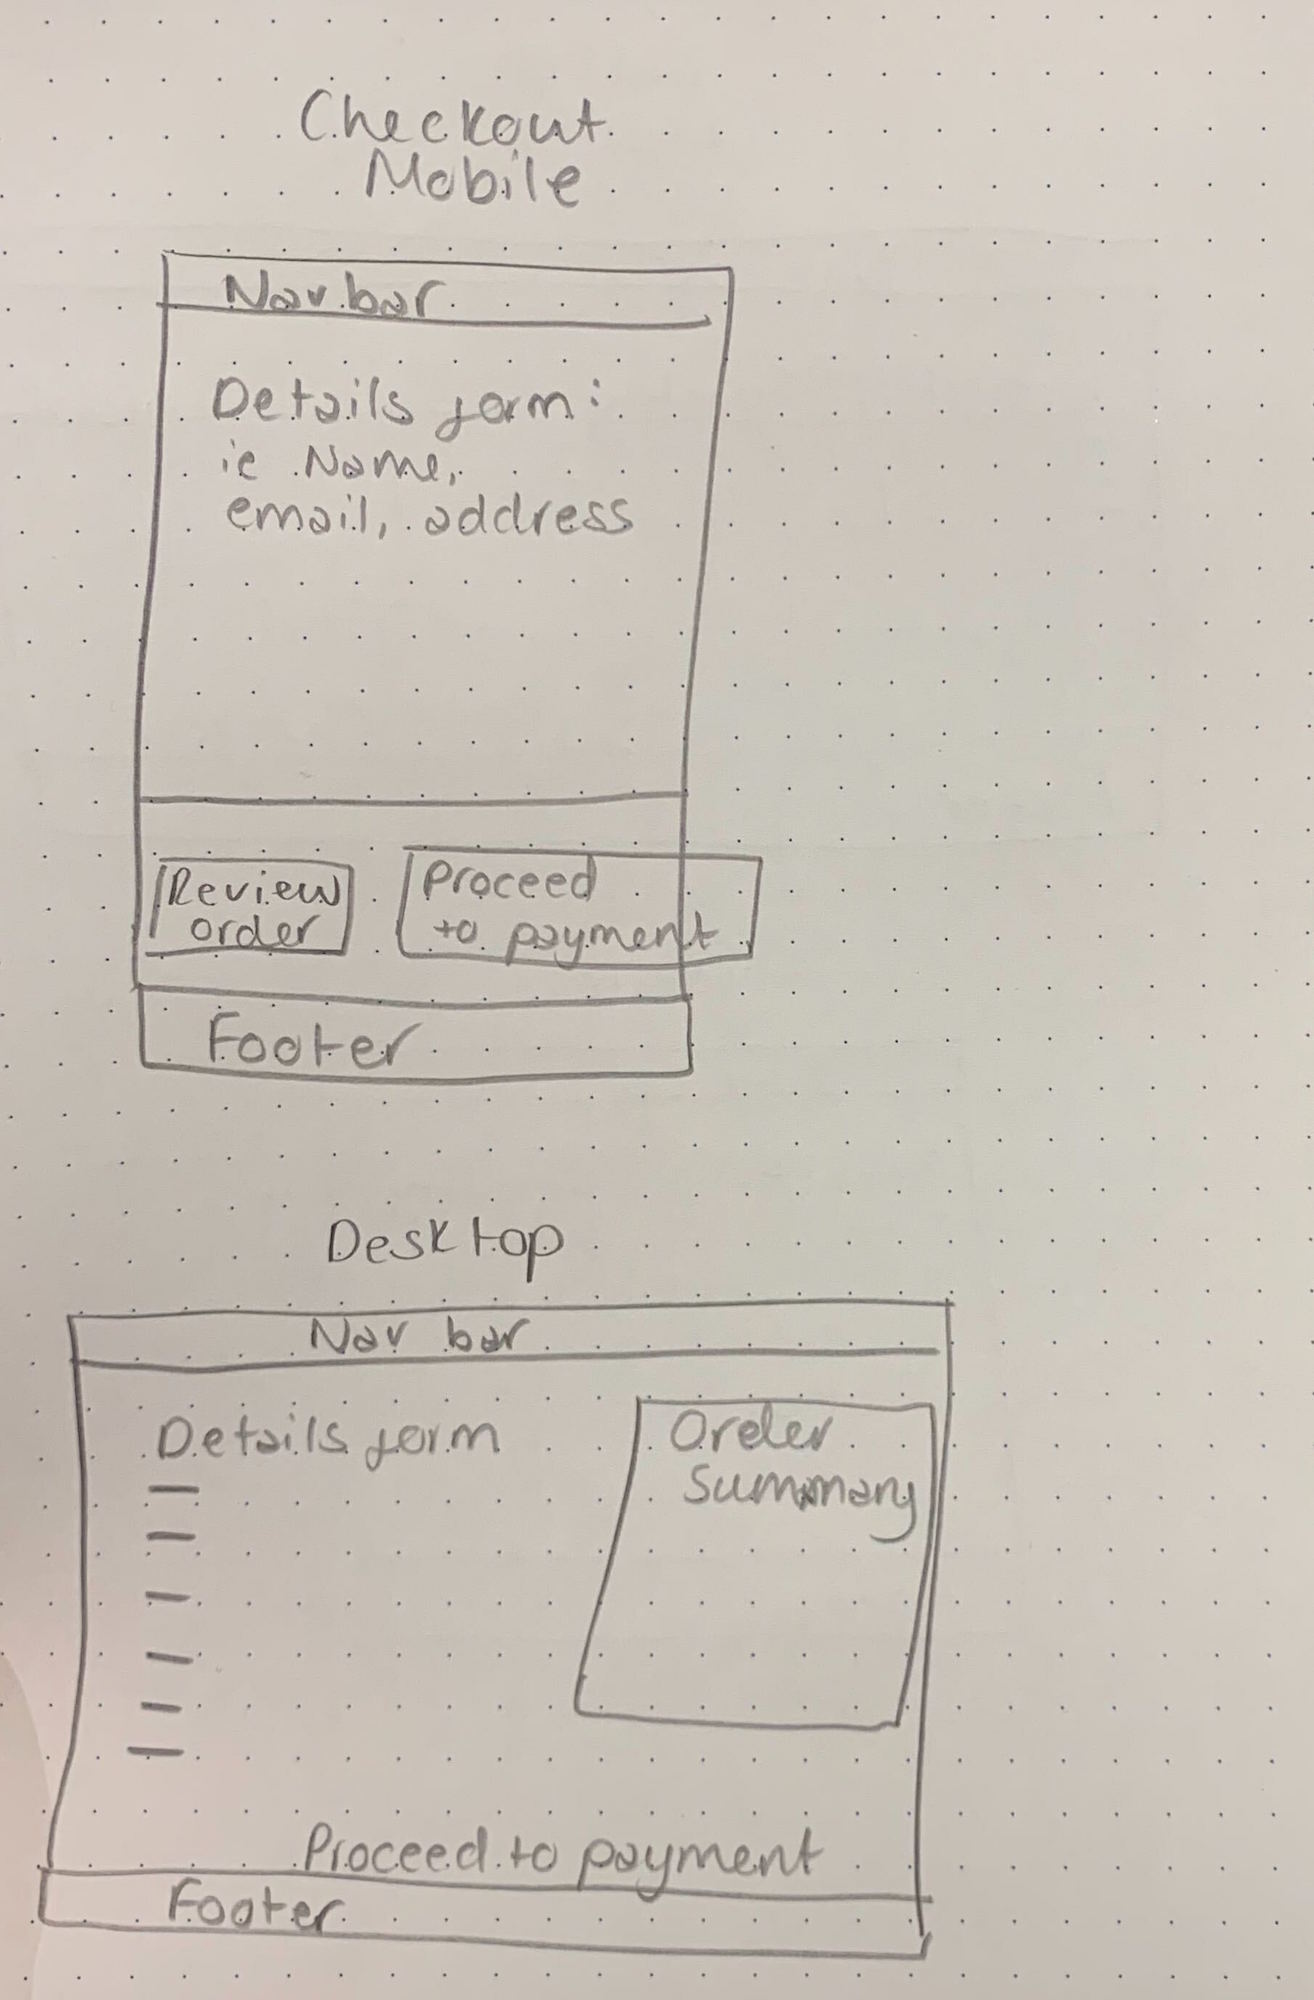 Checkout
Mobile
Nav bar
Details form:
ie Name,
email, address
Review
order
Proceed
to payment
Footer
Desktop
Nav bar
Details form
Order
Summary
Proceed to payment
Footer